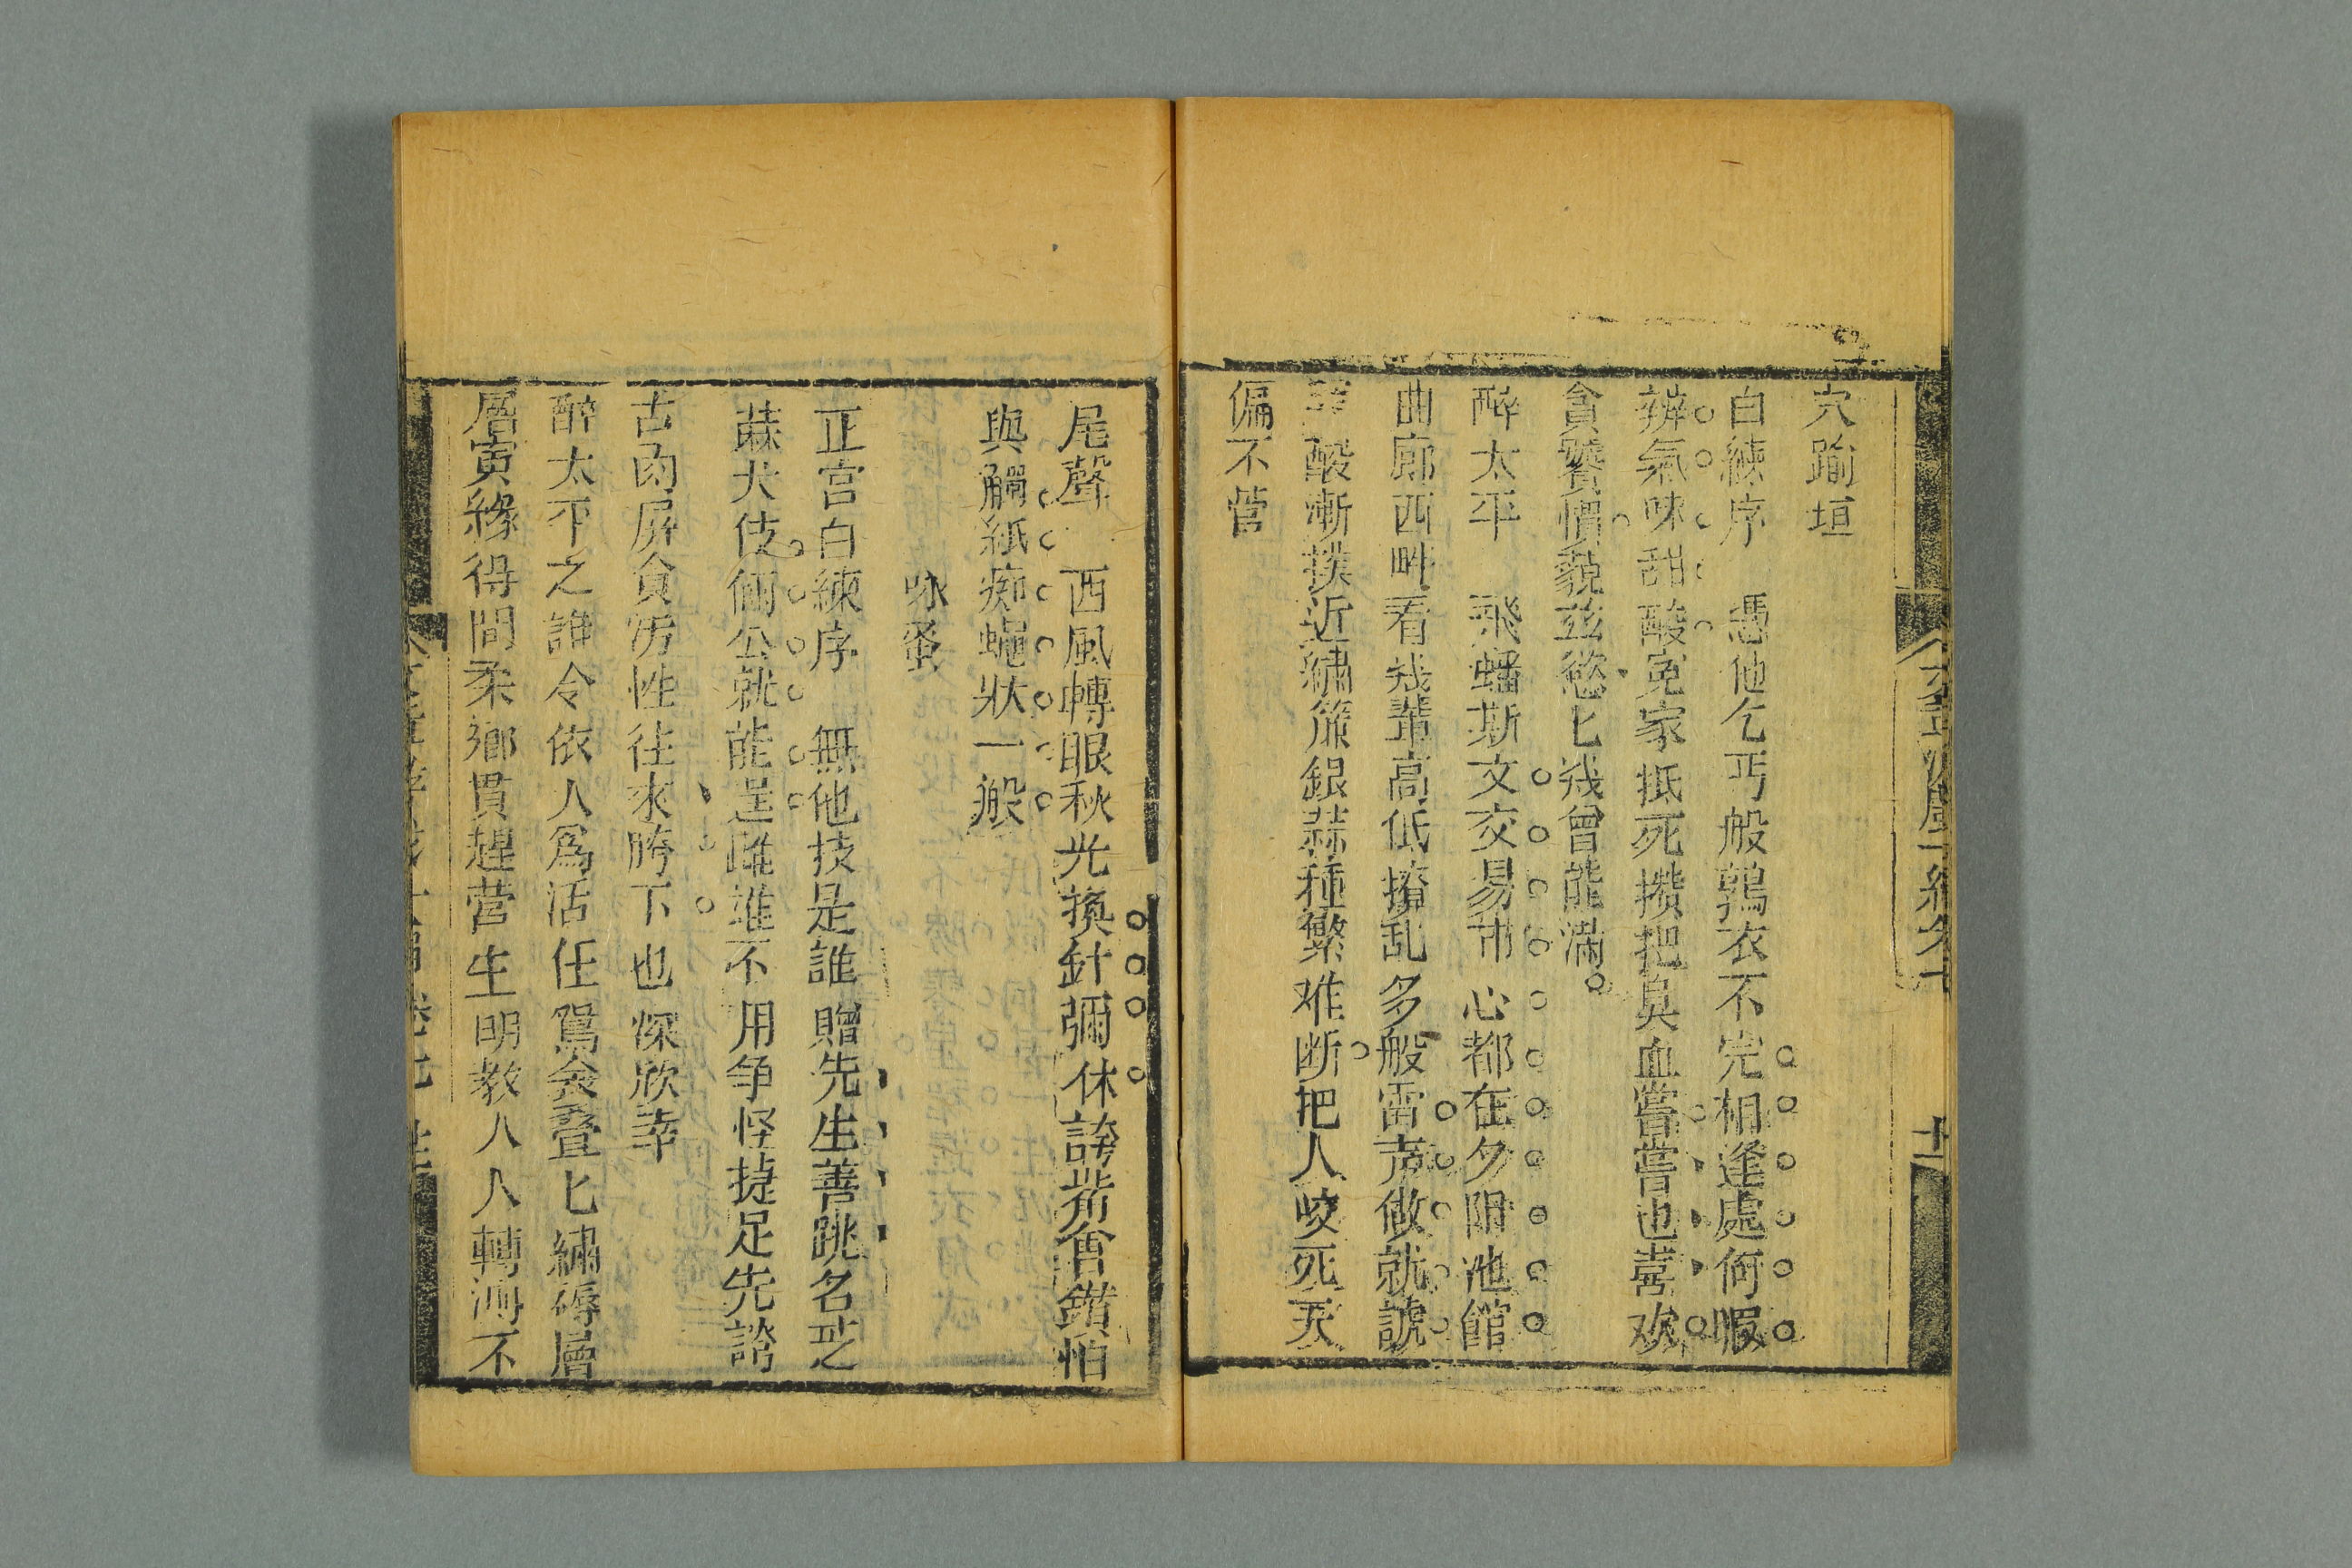 穴踰垣
白練序　憑他乞丐般鶉衣不完相逢處何暇
辨氣味甜酸冤家抵死攢把臭血嘗嘗也喜欢
貪饕慣藐玆慾匕㡬曾能滿
醉太平　飛蟠斯文交易市心都在夕阴池館
曲廊西畔看㡬輩高低撩乱多般雷声做就諕
酸漸撲近繡簾銀蒜種繁难断把人咬死天
偏不管
十一
尾聲　西風轉眼秋光換針彌休誇觜會鑽怕
與觸紙痴蠅狀一般
咏蚤
正宮白練序　無他技是誰贈先生善跳名疋
蔴大伎倆公就能逞踓進不用争怪捷足先諮
古肉屏貪穷性往來胯下也深欣幸
醉太平之誰令依人爲活任鴛衾叠匕繡褥層
層寅緣得間柔鄉貫趕營生明教人人轉海不